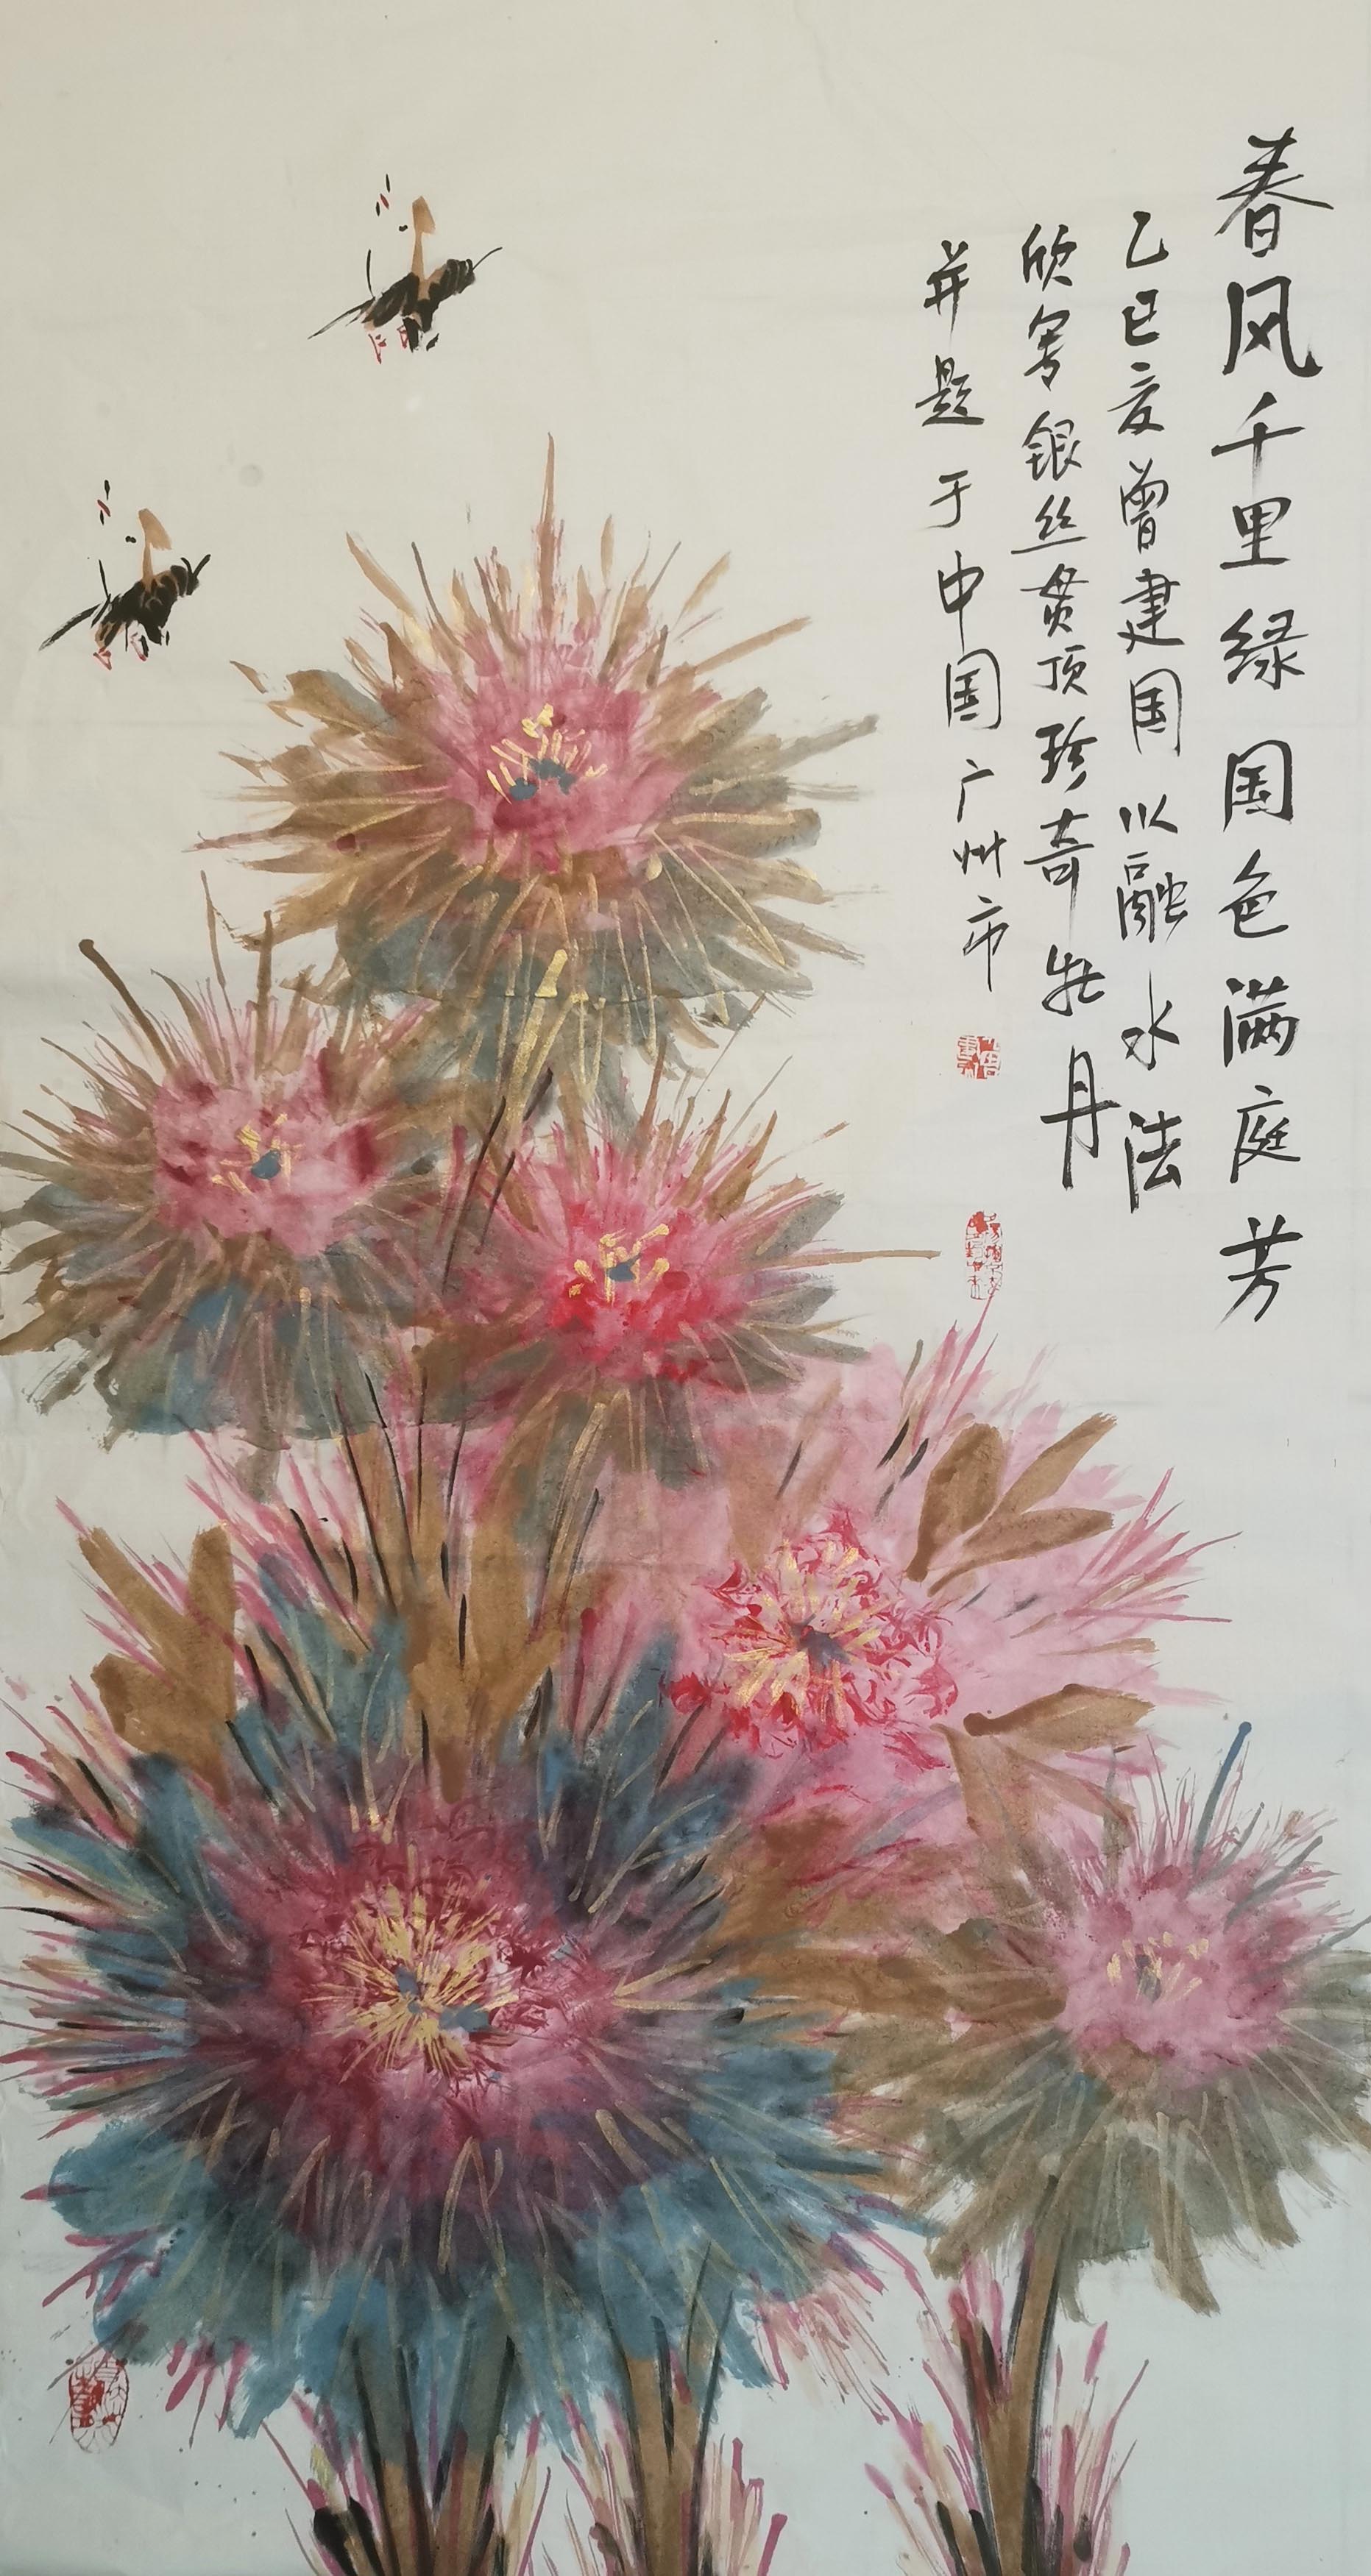 春风千里绿国色满庭芳
乙巳夏曾建国以融水法
欣写银丝贯顶珍奇牡丹
并题于中国广州市